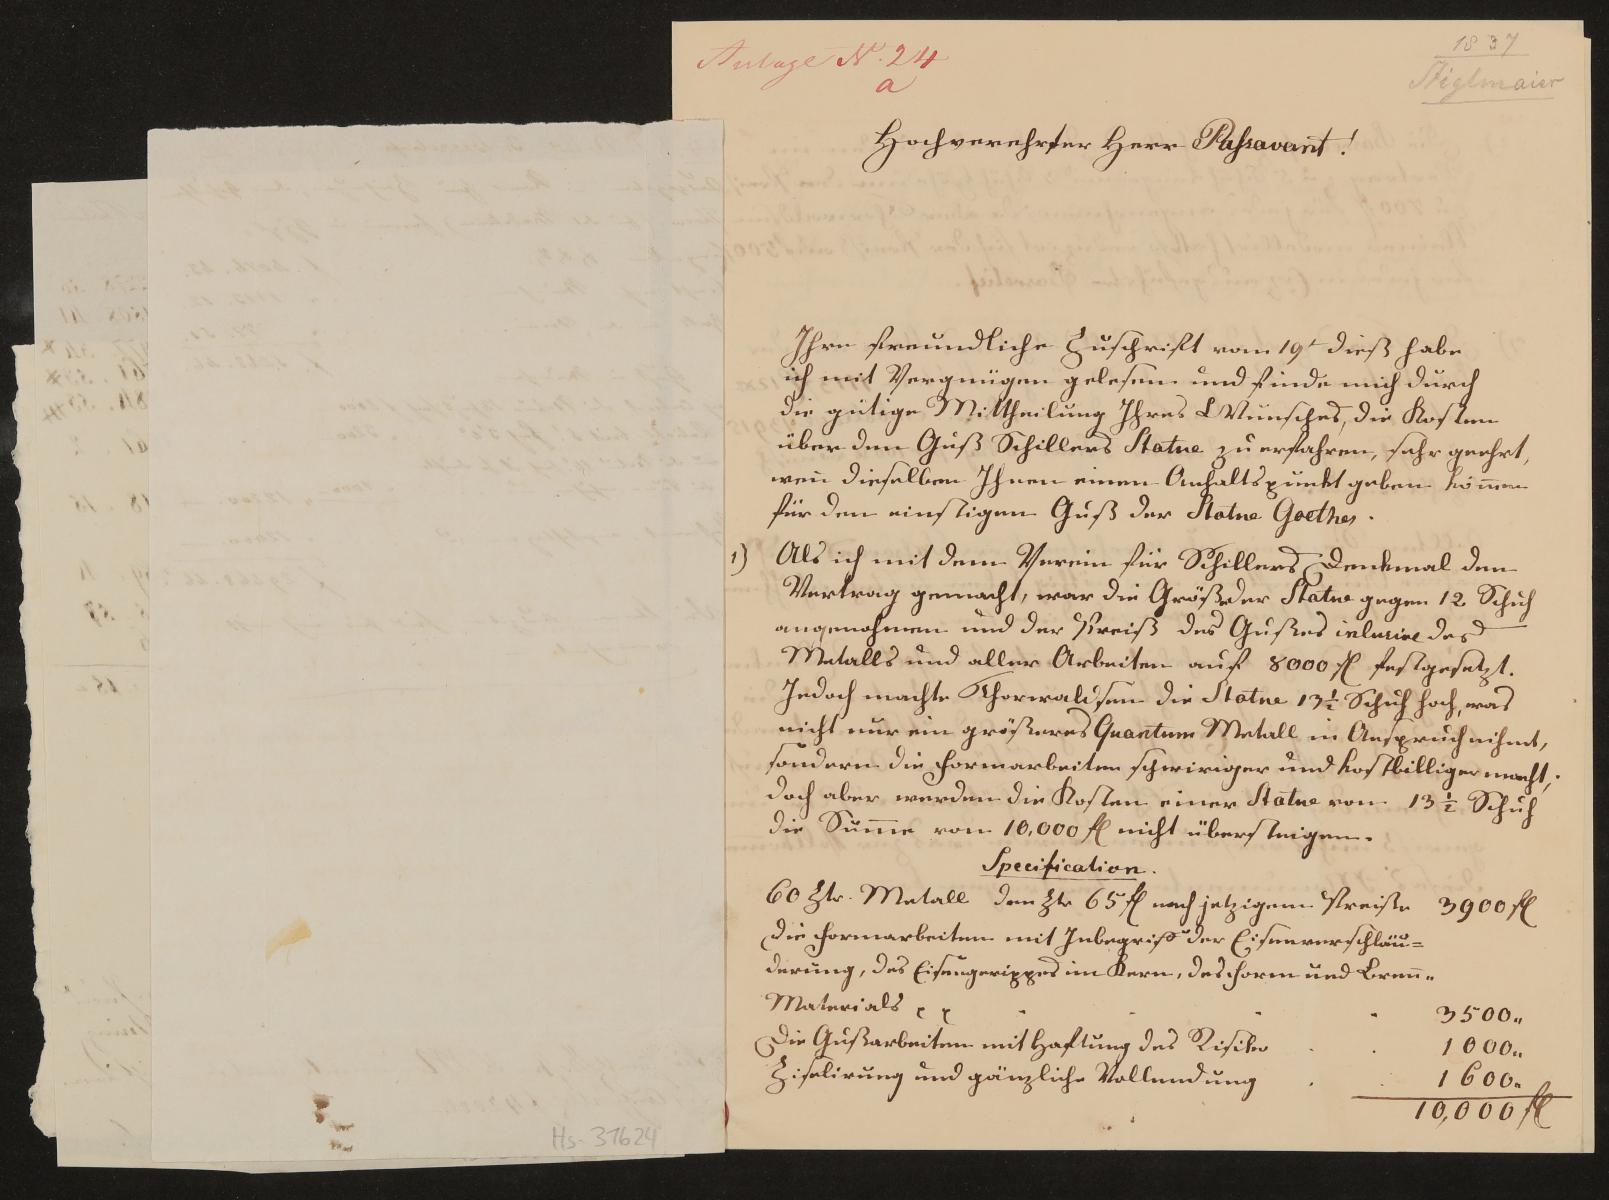 Anlage N. 24
a
1837
Stiglmaier
Hochverehrter Herr Passavant!
Ihre freundliche Zuschrift vom 19t dieß habe
ich mit Vergnügen gelesen und finde mich durch
die gütige Mittheilung Ihres Wunsches, die Kosten
über den Guß Schillers Statue zu erfahren, sehr geehrt,
wen̄ dieselben Ihnen einen Anhaltspunkt geben kön̄en
für den einstigen Guß der Statue Goethes.
1) Als ich mit dem Verein für Schillers Denkmal den
Vertrag gemacht, war die Größe der Statue gegen 12 Schuh
angenohmen und der Preiß des Gußes inlusive des
Metalls und aller Arbeiten auf 8000 fl festgesetzt.
Jedoch machte Thorwaldsen die Statue 13½ Schuh hoch, was
nicht nur ein größeres Quantum Metall in Anspruch nihmt,
sondern die Formarbeiten schwiriger und kostbilliger macht;
doch aber werden die Kosten einer Statue von 13½ Schuh
die Sum̄e von 10,000 fl nicht übersteigen.
Specification.
60 Ztr. Metall den Ztr 65 fl nach jetzigem Preiße 3900 fl
Die Formarbeiten mit Inbegriff der Eisenverschläu=
derung, des Eisengerippes im Kern, des Form und Bren̄=
Materials . . . 3500„
Die Gußarbeiten mit Haftung des Risiko . . 1000„
Ziselirung und gänzliche Vollendung . . 1600„
10,000 fl
Hs-31624